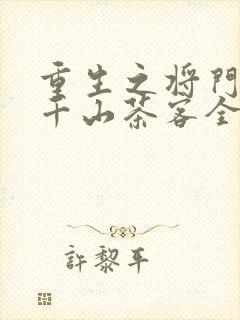 重生之将门
千山茶客全
許黎平